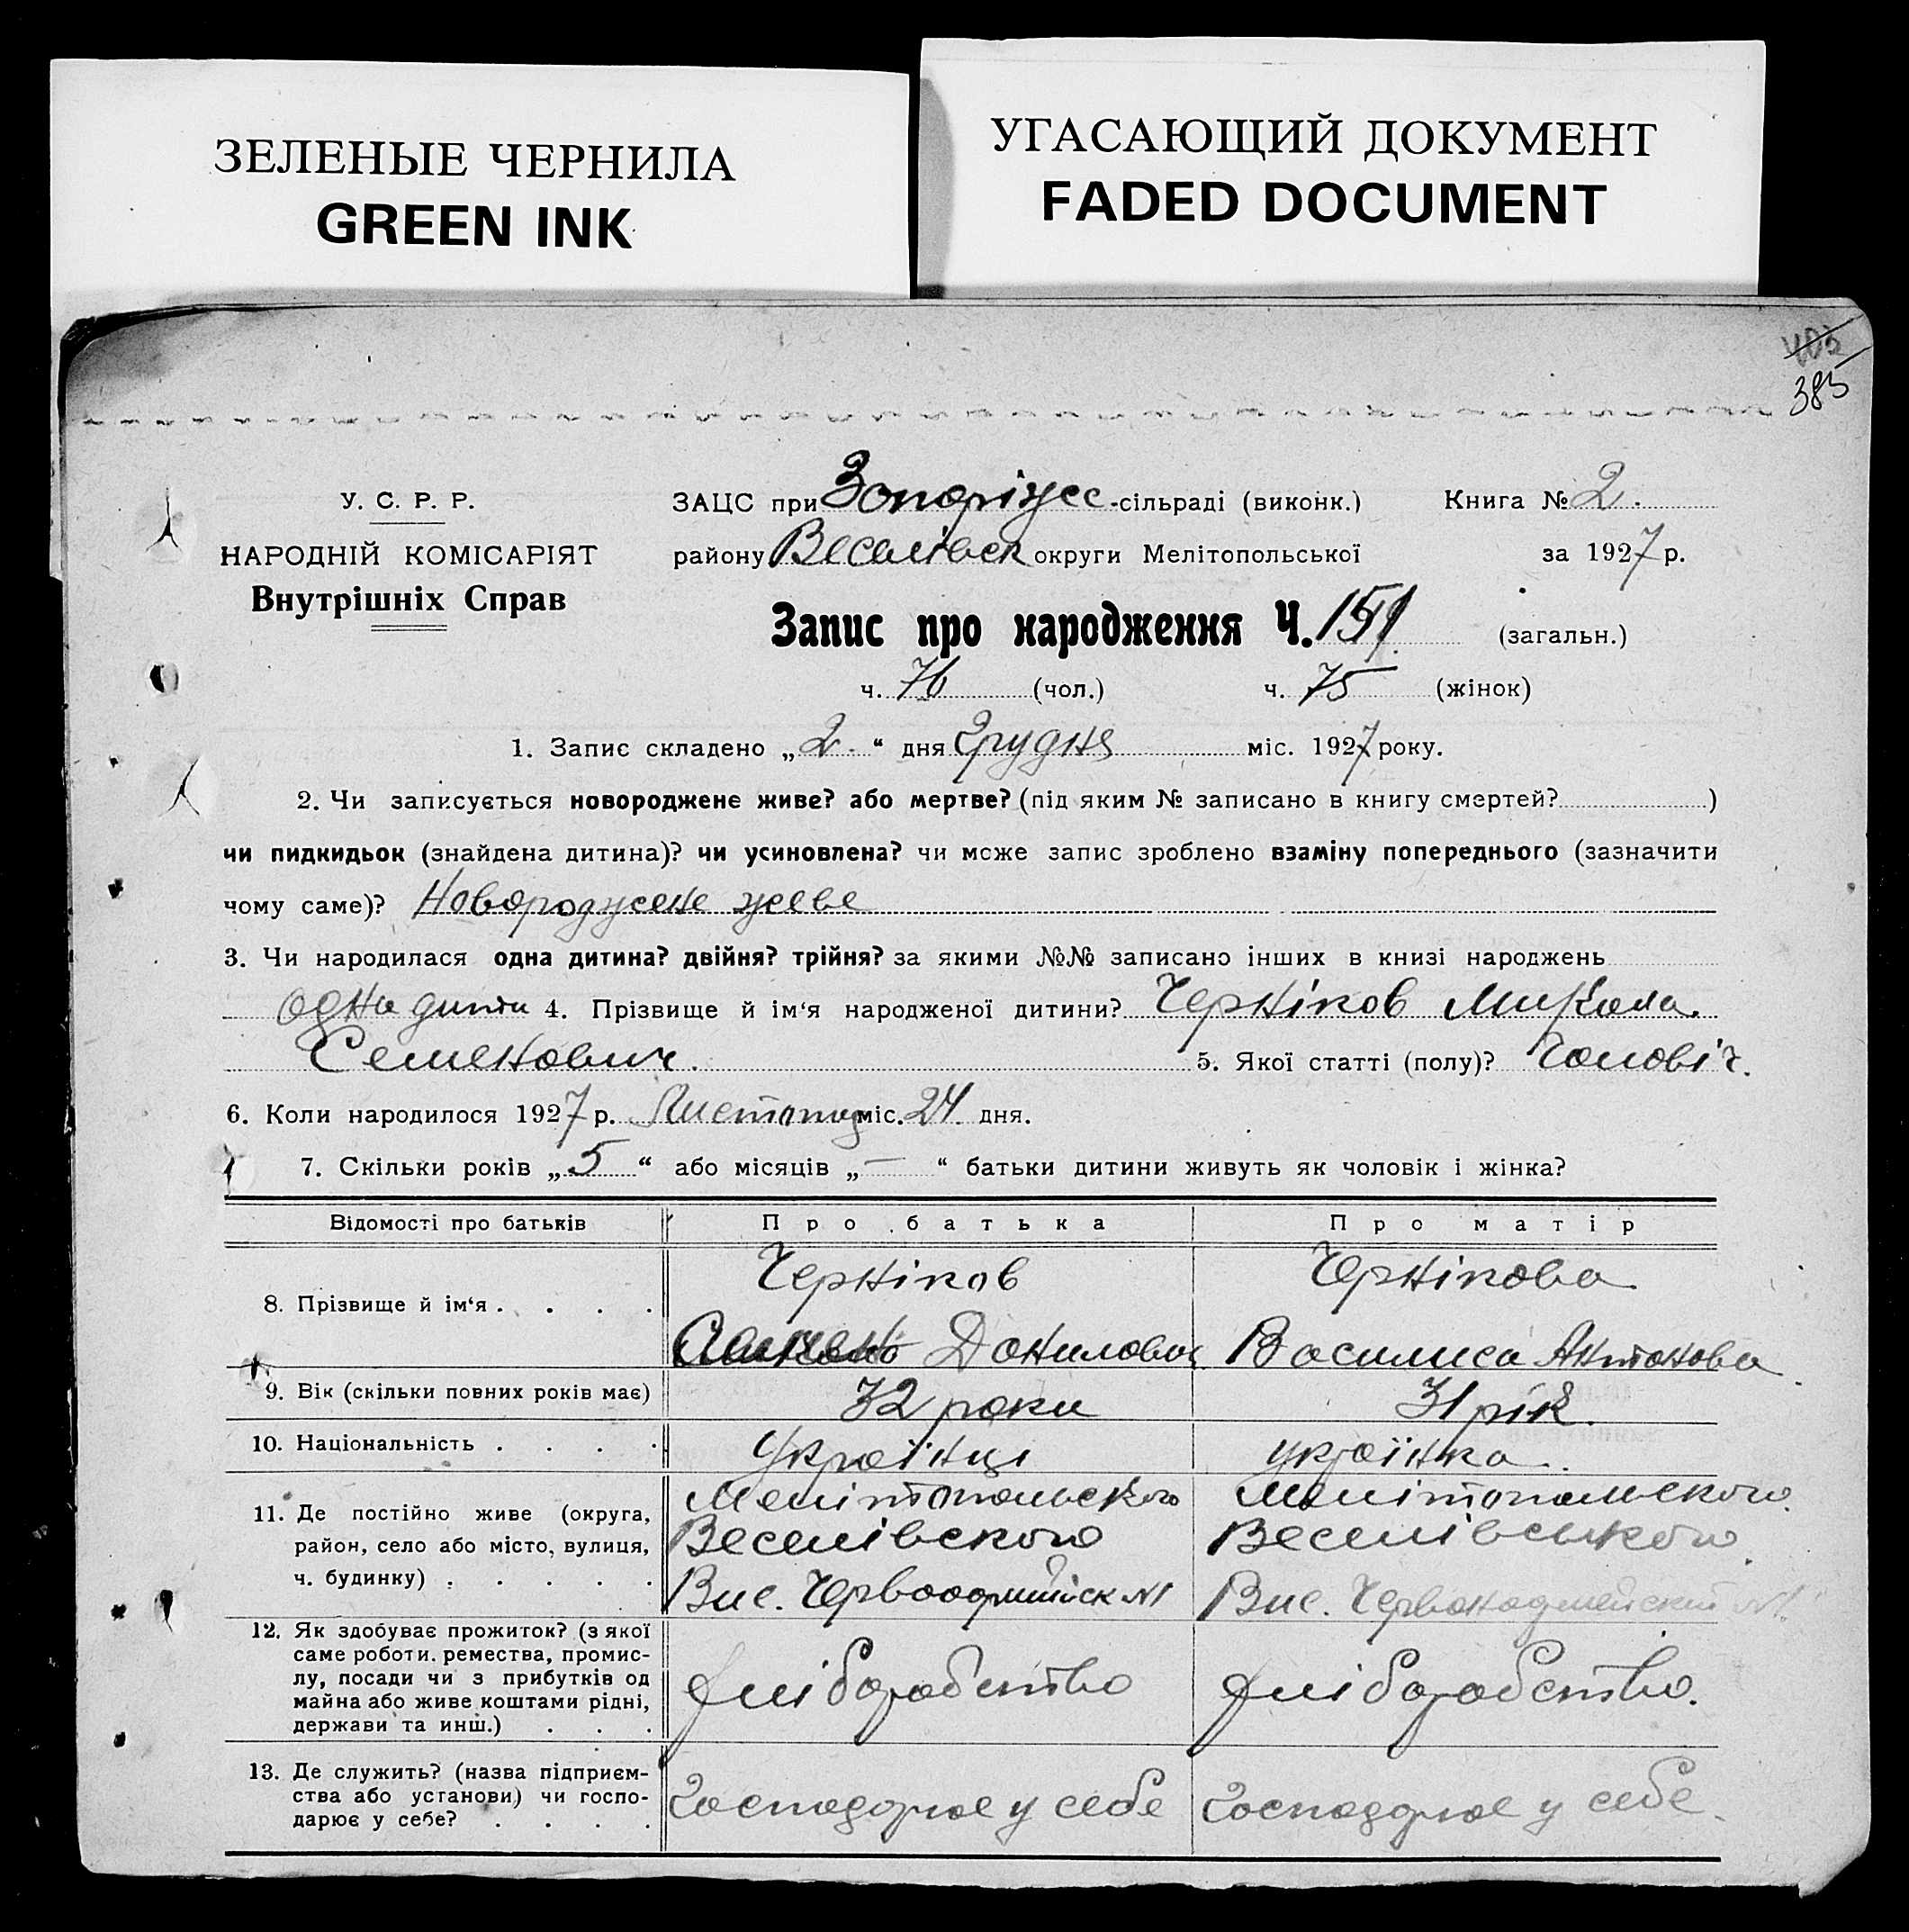 ЗЕЛЕНЫЕ ЧЕРНИЛА
GREEN INK
УГАСАЮЩИЙ ДОКУМЕНТ
FADED DOCUMENT
385
У. С. Р. Р.
НАРОДНІЙ КОМІСАРІЯТ
Внутрішніх Справ
ЗАЦС при -сільраді (виконк.) Книга № 2.
району Веселівск округи Мелітопольської за 1927 р.
Запис про народження Ч. 151 (загальн.)
ч. 76 (чол.) ч. 75 (жінок)
1. Запис складено „2.“ дня Грудня міс. 1927 року.
2. Чи записується новороджене живе? або мертве? (під яким № записано в книгу смертей? )
чи пидкидьок (знайдена дитина)? чи усиновлена? чи може запис зроблено взаміну попереднього (зазначити
чому саме)? Новороджене живе
3. Чи народилася одна дитина? двійня? трійня? за якими №№ записано інших в книзі народжень
одна 4. Прізвище й ім‘я народженої дитини? Черніков Микола
Семенович. 5. Якої статті (полу)? Чоловіч.
6. Коли народилося 1927 р. Листопад міс. 24. дня.
7. Скільки років „5“ або місяців „—“ батьки дитини живуть як чоловік і жінка?
Відомості про батьків Про батька Про матір
8. Прізвище й ім‘я . . . . Черніков Чернікова
Данилович Василиса Антонова
9. Вік (скільки повних років має) 32 роки 31 рік.
10. Національність . . . . Українці українка.
11. Де постійно живе (округа, район, село або місто, вулиця, ч. будинку) . . . . . Мелітопольского Мелітопольского
Веселівского Веселівського.
Вис. №1 Вис.
12. Як здобуває прожиток? (з якої
саме роботи, ремества, промис-
лу, посади чи з прибутків од
майна або живе коштами рідні,
держави та инш.) . . . хліборобство хліборобство.
13. Де служить? (назва підприєм-
ства або установи) чи госпо-
дарює у себе? . . . . Господарює у себе Господарює у себе.